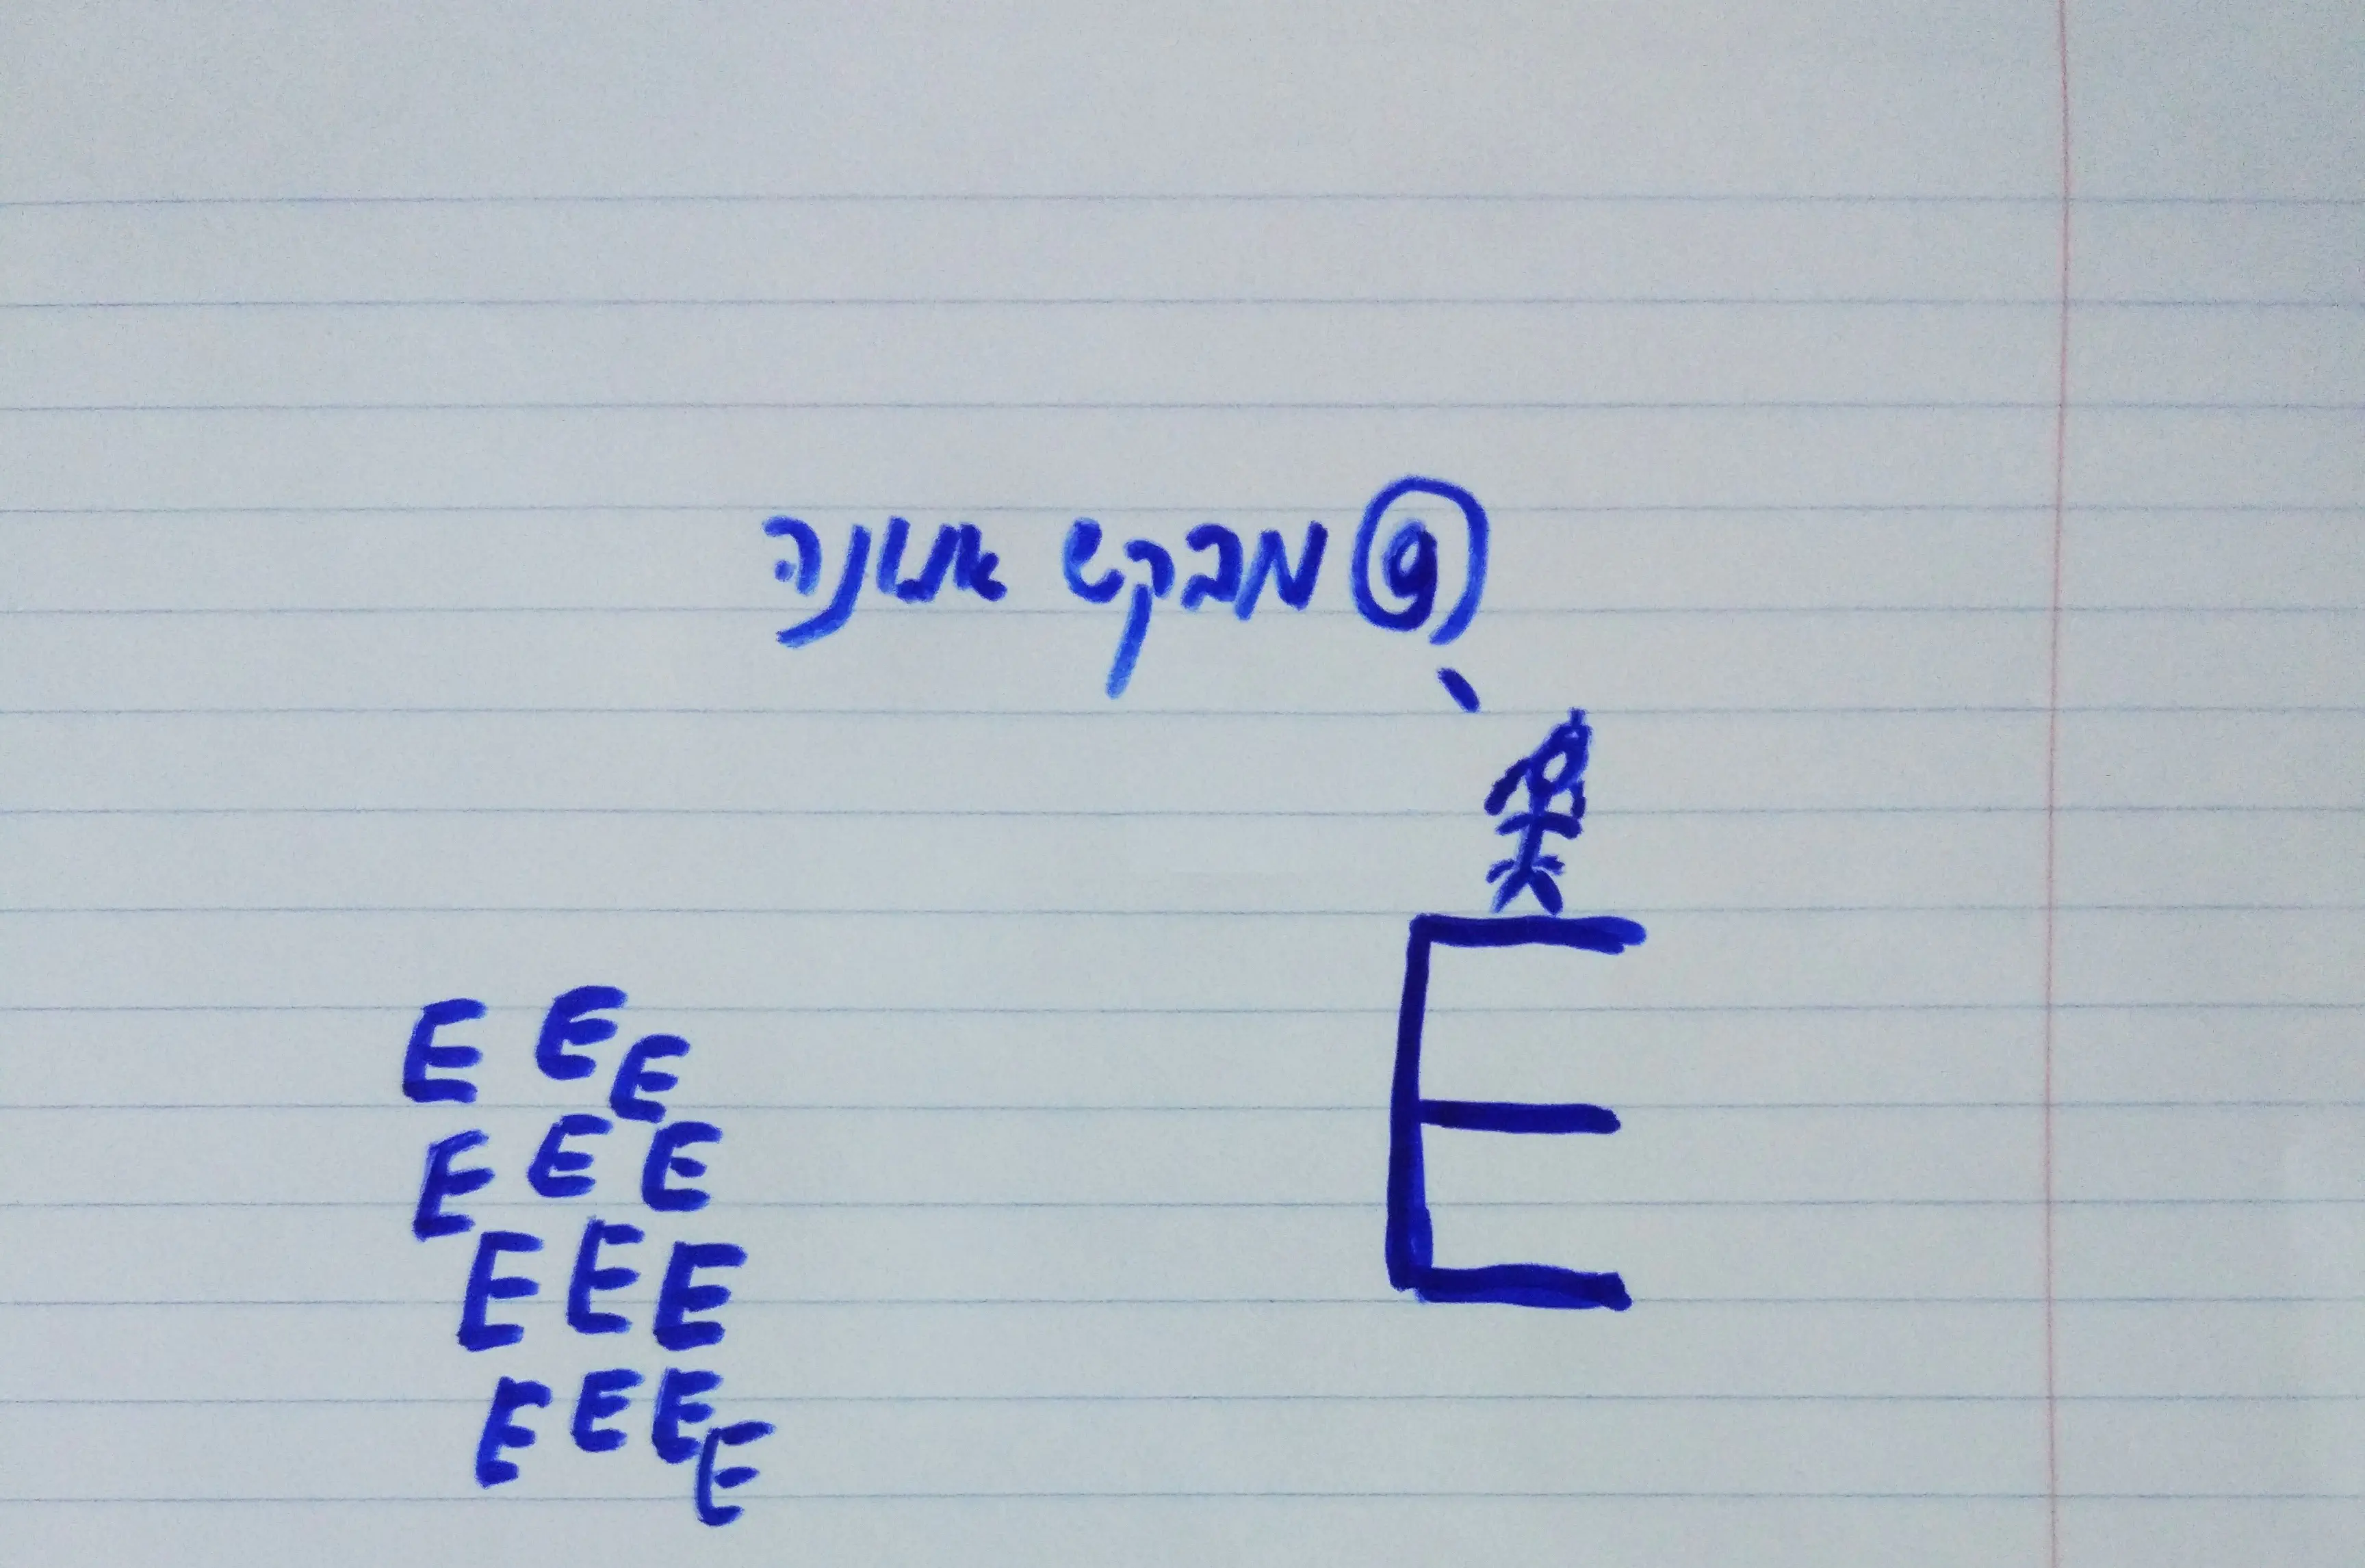 פ מבקש אמונה
E
E E E
E E E
E E E
E E E E